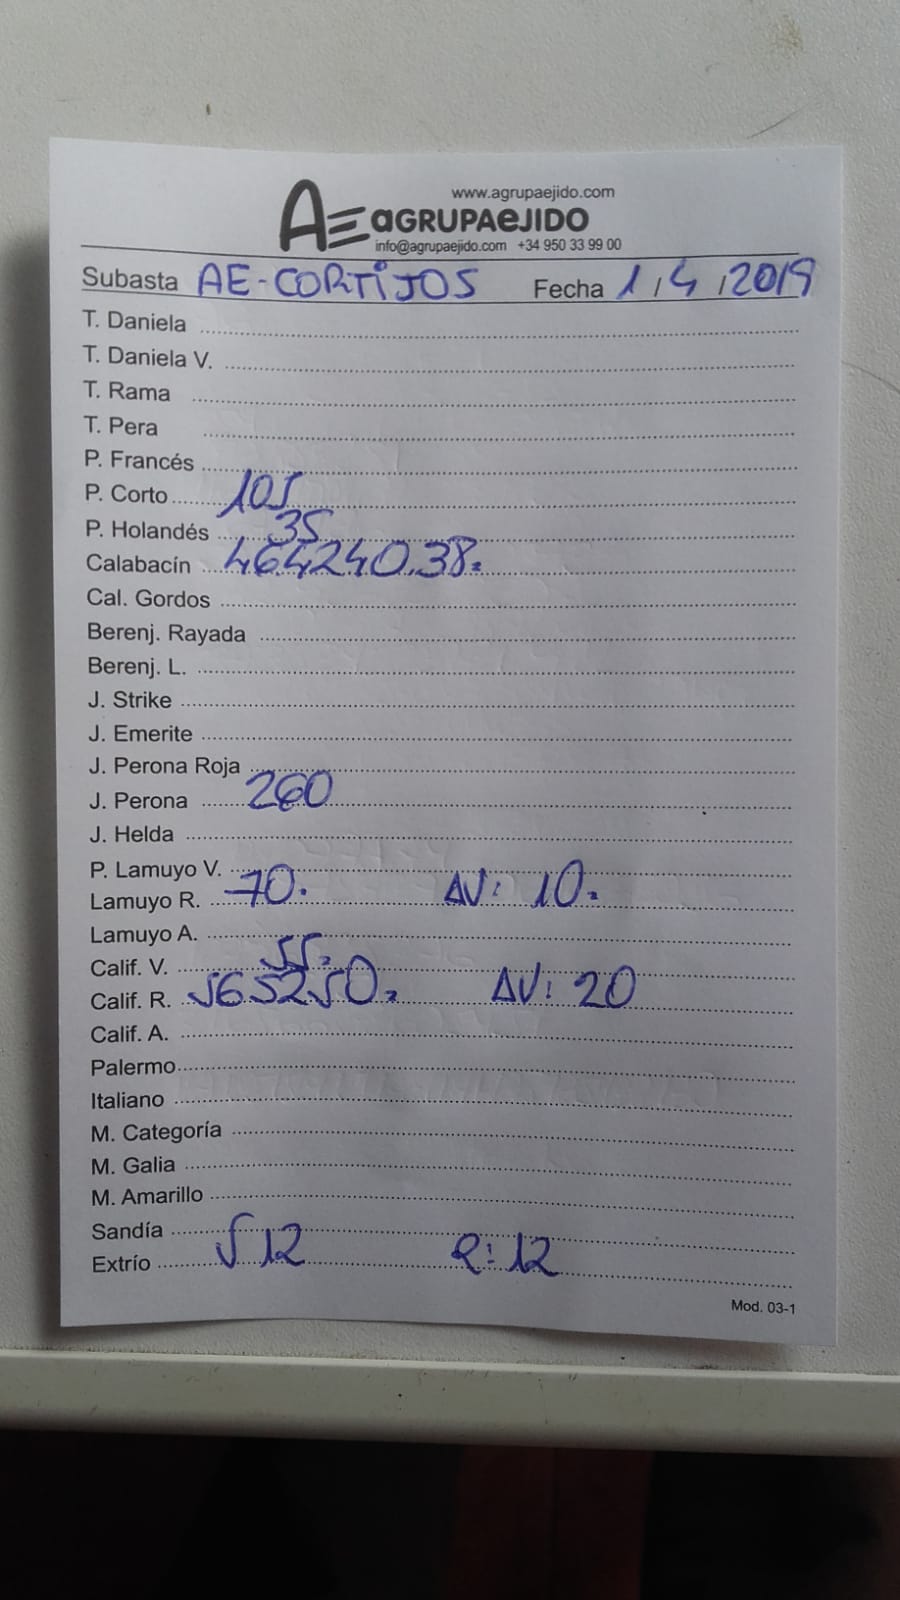 www.agrupaejido.com
AE aGRUPAeJIDO
info@agrupaejido.com +34 950 33 99 00
Subasta AE-CORTIJOS Fecha 1/4/2019
T. Daniela
T. Daniela V.
T. Rama
T. Pera
P. Francés
P. Corto 105
P. Holandés 35
Calabacín 464240.38.
Cal. Gordos
Berenj. Rayada
Berenj. L.
J. Strike
J. Emerite
J. Perona Roja
J. Perona 260
J. Helda
P. Lamuyo V.
Lamuyo R. 70. AV: 10.
Lamuyo A.
Calif. V. 55.
Calif. R. 565250. AV: 20
Calif. A.
Palermo
Italiano
M. Categoría
M. Galia
M. Amarillo
Sandía
Extrío 12 R: 12
Mod. 03-1